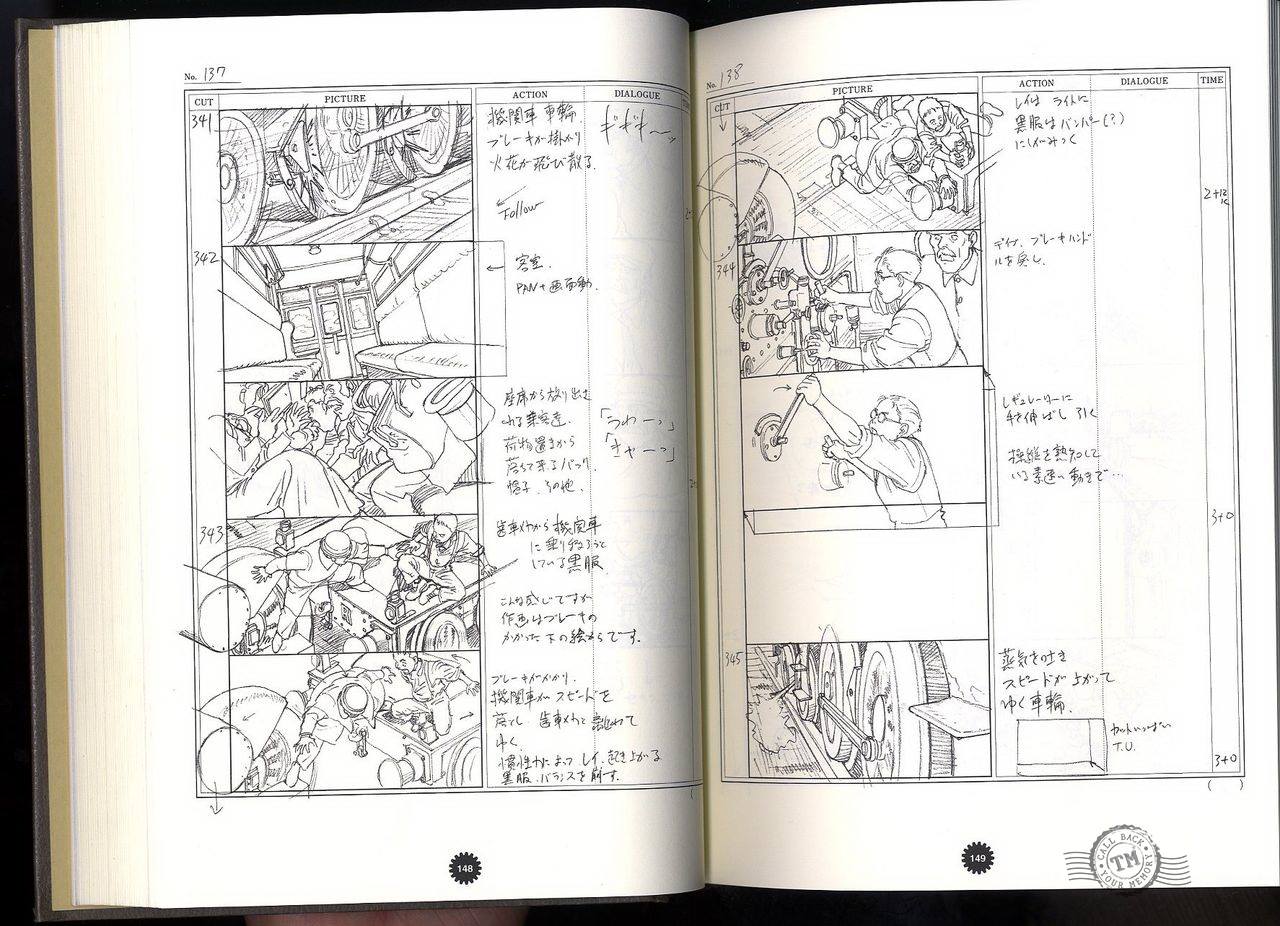 No. 137
CUT
PICTURE
ACTION
DIALOGUE
341
機関車 車輪
ブレーキが掛かり
火花が飛び散る.
ギギギ〜ッ
Follow
342
客室.
PAN+画面動.
座席から放り出さ
れる乗客達.
荷物置きから
落ちて来るバッグ,
帽子、その他.
「うわーっ」
「きゃーっ」
343
歯車メカから機関車
に乗り移ろうと
している黒服.
こんな感じですが
作画はブレーキの
かかった下の絵からです.
ブレーキがかかり.
機関車がスピードを
落とし 歯車メカと離れて
ゆく.
慣性力によって レイ、起き上がる
黒服.バランスを崩す.
148
No. 138
CUT
PICTURE
ACTION
DIALOGUE
TIME
レイは ライトに
黒服はバンパー(?)
にしがみつく
2+12
344
デイブ、ブレーキハンド
ルを戻し.
レギュレーターに
手を伸ばし 引く
操縦を熟知して
いる素速い動きで…
3+0
345
蒸気を吐き
スピードが上がって
ゆく車輪.
カットいっぱい
T.U.
3+0
( )
149
CALL BACK
TM
YOUR MEMORY